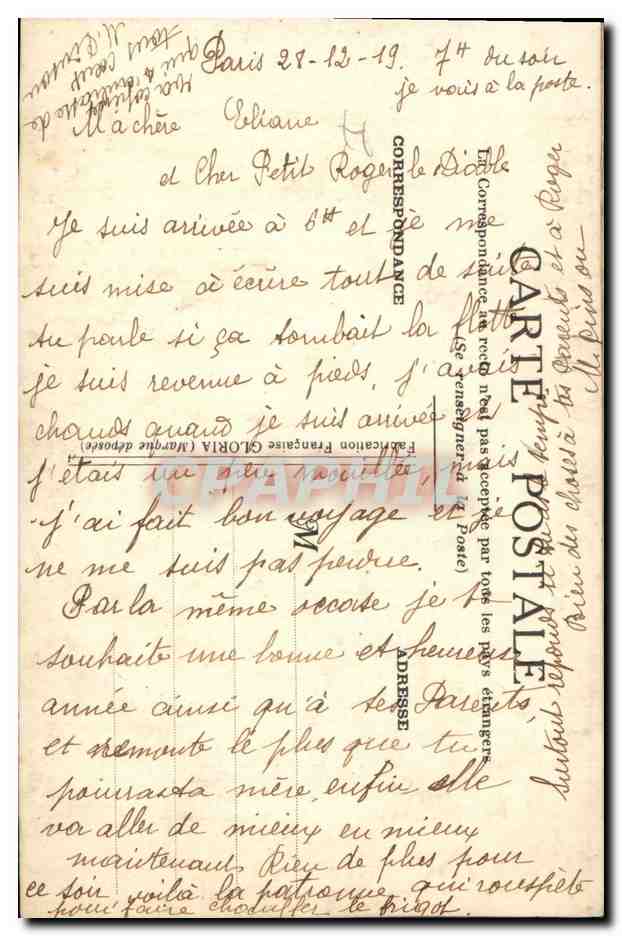 Paris 28-12-19. 7H du soir
je vais à la poste.
Ma chère Eliane
et Cher Petit Roger le Diable
Je suis arrivée à 6H et je me
suis mise à écrire tout de suite
tu parle si ça tombait la flotte
je suis revenue à pieds, j'avais
chauds quand je suis arrivée et
j'étais un peu mouillée, mais
j'ai fait bon voyage et je
ne me suis pas perdue.
Par la même occase je te
souhaite une bonne et heureuse
année ainsi qu'à tes Parents,
et remonte le plus que tu
pourras ta mère, enfin elle
va aller de mieux en mieux
maintenant Rien de plus pour
ce soir voilà la patronne qui rouspète
pour faire chauffer le frigot.
Surtout réponds
Bien des choses à tes Parents et à Roger
M. Pinson
qui
de
tout cœur
M. Pinson
CARTE POSTALE
La Correspondance au recto n'est pas acceptée par tous les pays étrangers
(Se renseigner à la Poste)
CORRESPONDANCE
ADRESSE
M
Fabrication Française GLORIA (Marque déposée)
CPAPHIL